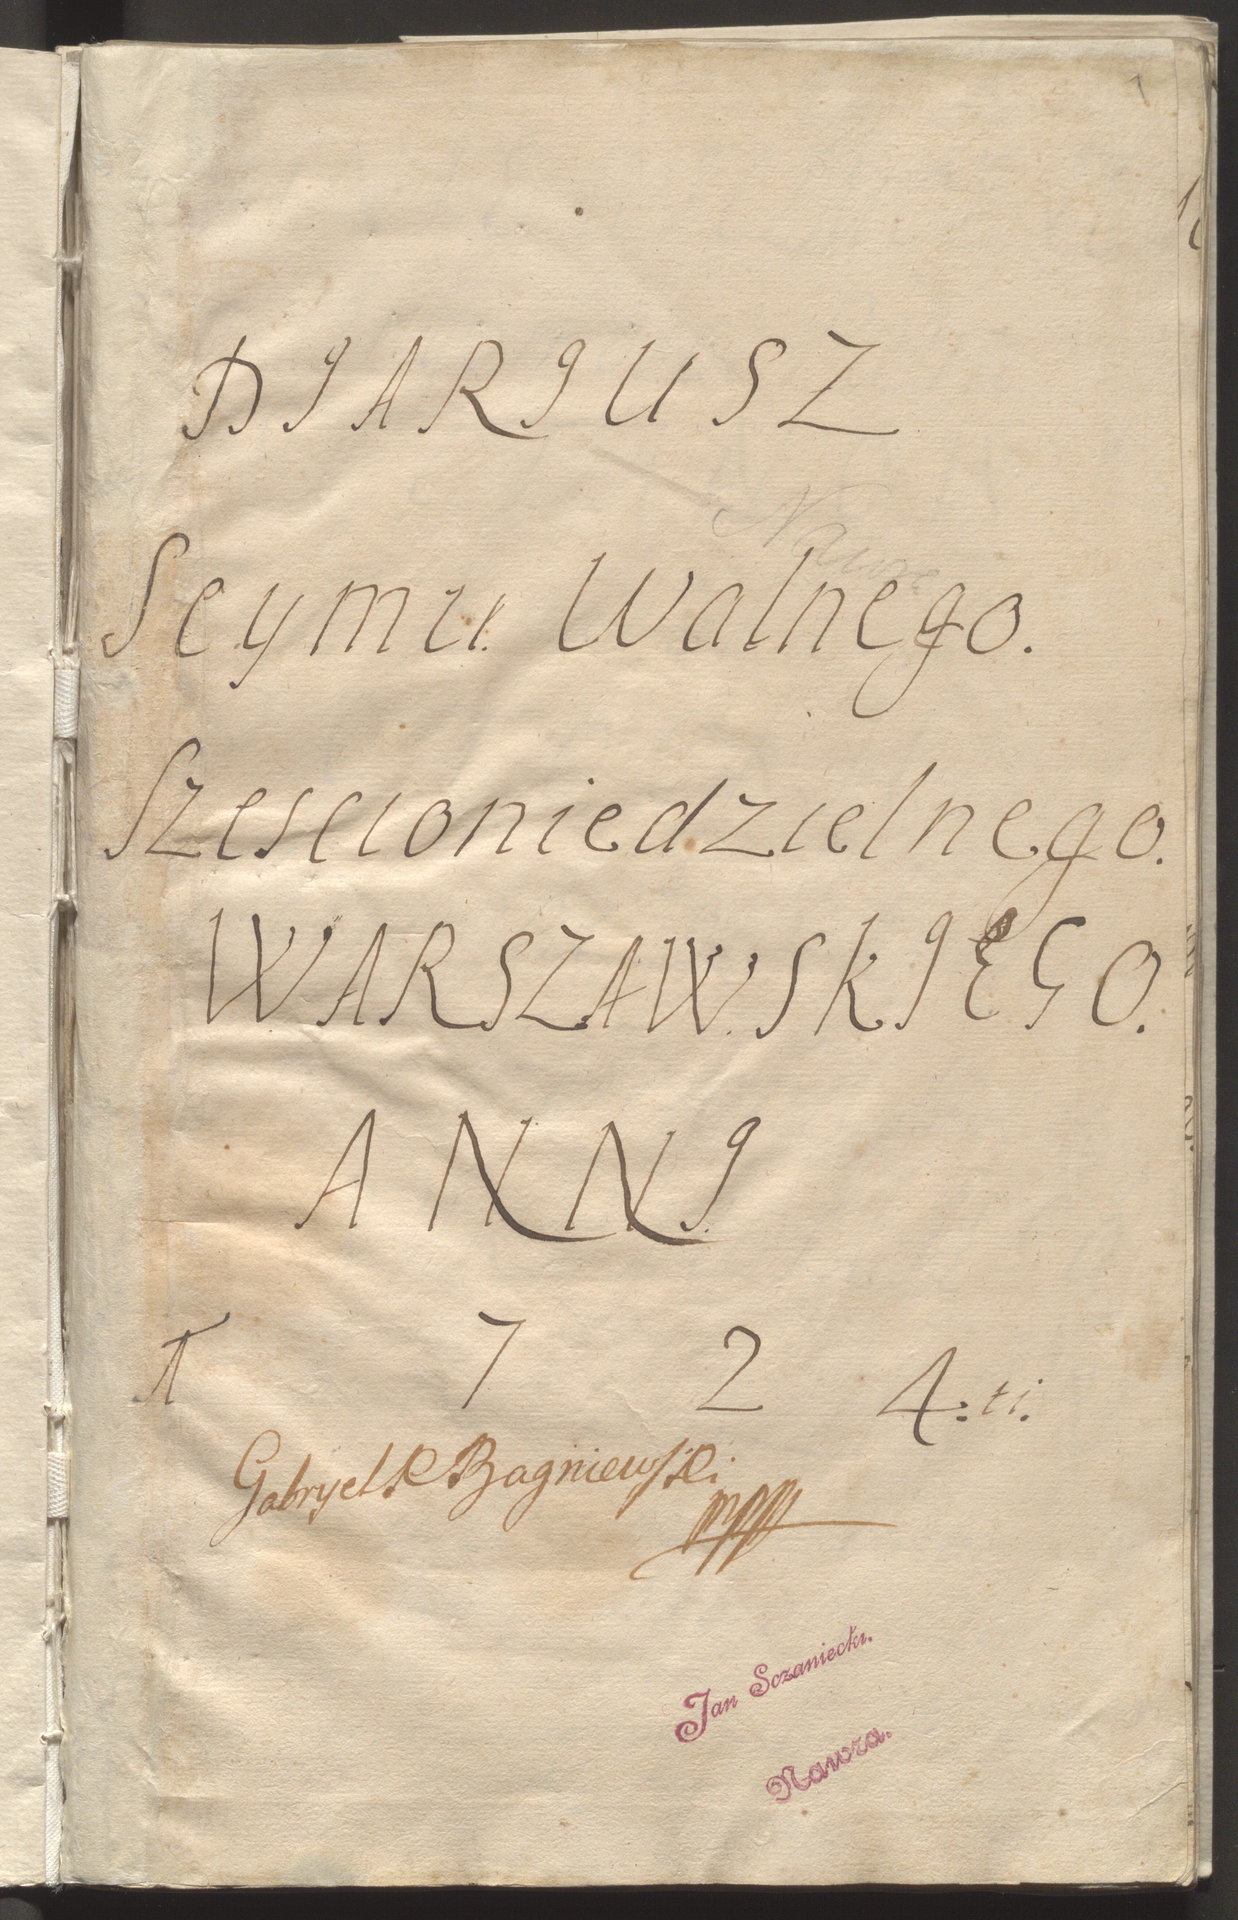 1
DIARIUSZ
Seymu Walnego.
Szescioniedzielnego.
WARSZAWSKIEGO.
ANNI
1 7 2 4:ti.
Gabryel Bagniewski
mpp
Jan Sczaniecki.
Nawra.